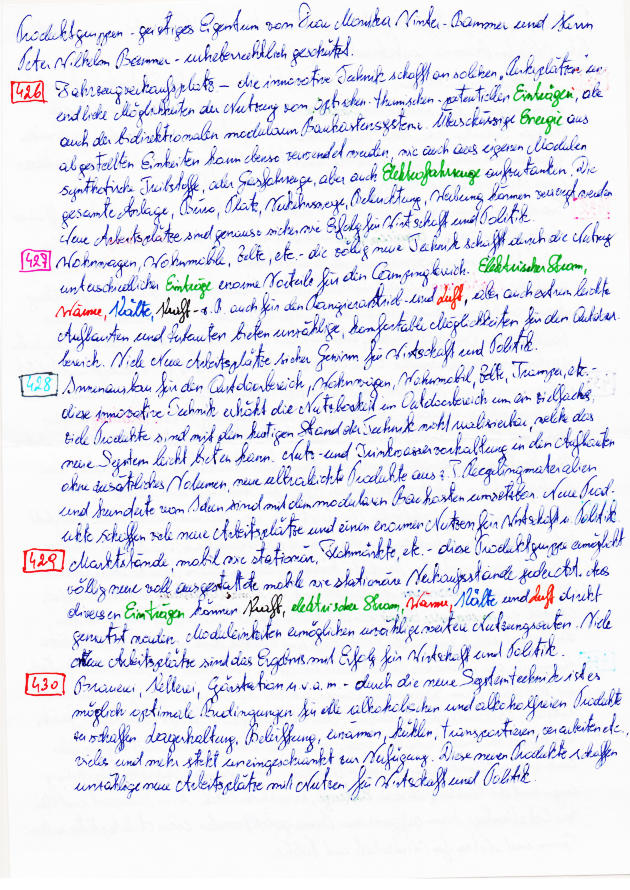 Produktgruppen - geistiges Eigentum von Frau Monika Vinter-Bammer und Herrn
Peter Wilhelm Bammer - urheberrechtlich geschützt.
426 Fahrzeugverkaufsplatz - die innovative Technik schafft an solchen „Parkplätzen" un-
endliche Möglichkeiten der Nutzung von optischen - thermischen - potentiellen Einträgen, alle
auch der bidirektionalen modularen Baukastensysteme. Überschüssige Energie aus
abgestellten Einheiten kann ebenso verwendet werden, wie auch aus eigenen Modulen
synthetische Treibstoffe, oder Gasfahrzeuge, aber auch Elektrofahrzeuge aufzutanken. Die
gesamte Anlage, Büro, Platz, Verkehrswege, Beleuchtung, Werbung können versorgt werden
Neue Arbeitsplätze sind genauso sicher wie Erfolg für Wirtschaft und Politik.
427 Wohnwagen, Wohnmobile, Zelte, etc. - die völlig neue Technik schafft durch die Nutzung
unterschiedlicher Einträge enorme Vorteile für den Campingbereich. Elektrischer Strom,
Wärme, Kälte, Kraft - z.B. auch für den Rangierantrieb - und Luft, aber auch extrem leichte
Aufbauten und Einbauten bieten unzählige, komfortable Möglichkeiten für den Outdoor-
bereich. Viele Neue Arbeitsplätze sicher Gewinn für Wirtschaft und Politik.
428 Innenausbau für den Outdoorbereich, Wohnwägen, Wohnmobil, Zelte, Tramper, etc. -
diese innovative Technik erhöht die Nutzbarkeit im Outdoorbereich um ein vielfaches,
viele Produkte sind mit dem heutigen Stand der Technik nicht realisierbar, welche das
neue System leicht bieten kann. Nutz- und Trinkwasservorhaltung in den Aufbauten
ohne zusätzliches Volumen, neue ultraleichte Produkte aus z.T. Recyclingmaterialien
und hunderte von Ideen sind mit dem modularen Baukasten umsetzbar. Neue Prod-
ukte schaffen viele neue Arbeitsplätze und einen enormen Nutzen für Wirtschaft u. Politik.
429 Marktstände, mobil wie stationär, Flohmärkte, etc. - diese Produktgruppe ermöglicht
völlig neue voll ausgestattete mobile wie stationäre Verkaufsstände jederzeit. Aus
diversen Einträgen können Kraft, elektrischer Strom, Wärme, Kälte und Luft direkt
genutzt werden. Moduleinheiten ermöglichen unzählige weitere Nutzungsarten. Viele
neue Arbeitsplätze sind das Ergebnis mit Erfolg für Wirtschaft und Politik.
430 Brauerei, Kelterei, Gärstation u.v.a.m - durch die neue Systemtechnik ist es
möglich optimale Bedingungen für alle alkoholischen und alkoholfreien Produkte
zu schaffen. Lagerhaltung, Belüftung, wärmen, kühlen, transportieren, verarbeiten etc.,
vieles und mehr steht uneingeschränkt zur Verfügung. Diese neuen Produkte schaffen
unzählige neue Arbeitsplätze mit Nutzen für Wirtschaft und Politik.